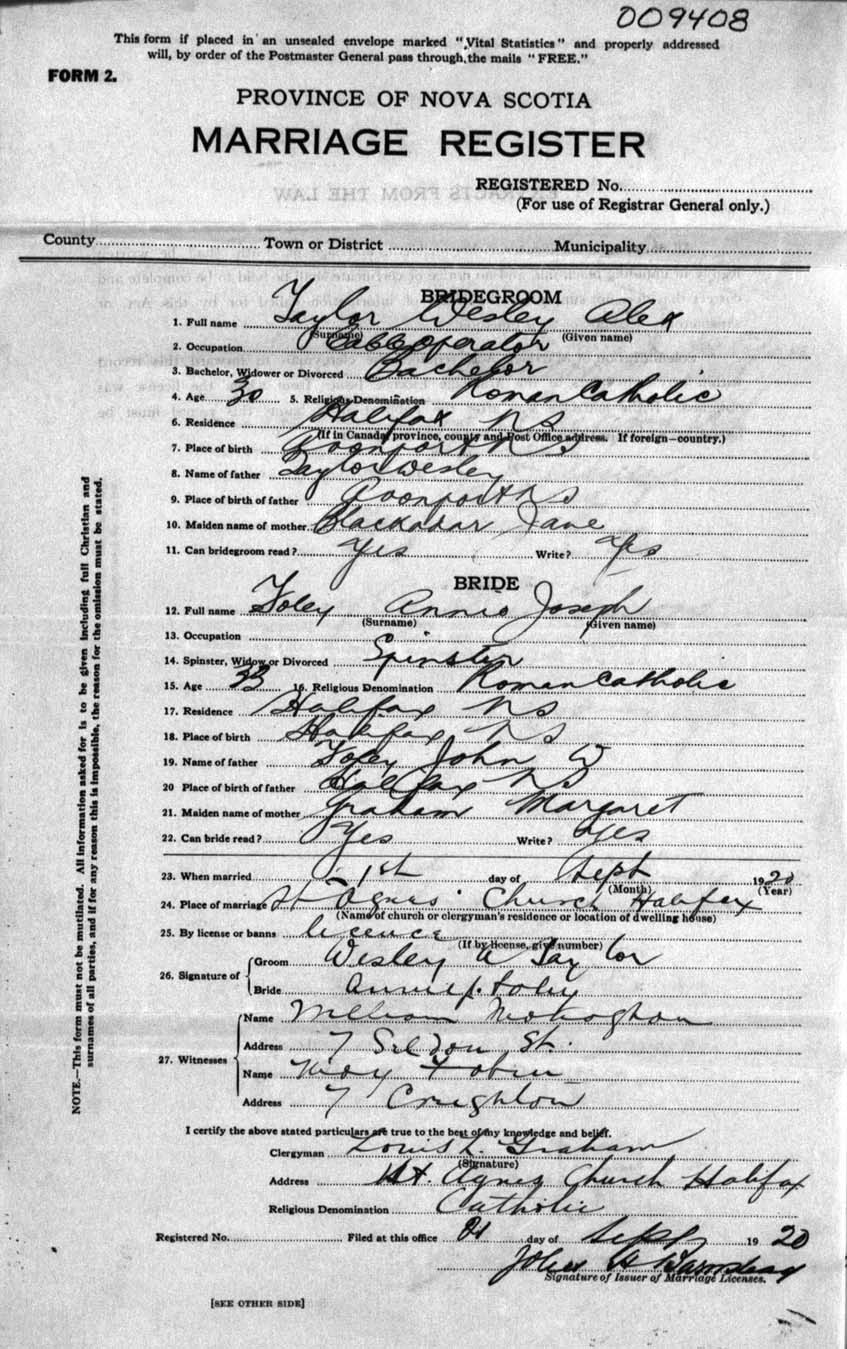 009408
This form if placed in an unsealed envelope marked "Vital Statistics" and properly addressed
will, by order of the Postmaster General pass through the mails "FREE."
FORM 2.
PROVINCE OF NOVA SCOTIA
MARRIAGE REGISTER
REGISTERED No.
(For use of Registrar General only.)
County Town or District Municipality
BRIDEGROOM
1. Full name Taylor Wesley Alex
(Surname) (Given name)
2. Occupation Cable operator
3. Bachelor, Widower or Divorced Bachelor
4. Age 30 5. Religious Denomination Roman Catholic
6. Residence Halifax NS
(If in Canada, province, county and Post Office address. If foreign—country.)
7. Place of birth Avonport NS
8. Name of father Taylor Wesley
9. Place of birth of father Avonport NS
10. Maiden name of mother Blackadar Jane
11. Can bridegroom read? Yes Write? Yes
BRIDE
12. Full name Foley Annie Joseph
(Surname) (Given name)
13. Occupation
14. Spinster, Widow or Divorced Spinster
15. Age 33 16. Religious Denomination Roman Catholic
17. Residence Halifax NS
18. Place of birth Halifax NS
19. Name of father Foley John W
20 Place of birth of father Halifax NS
21. Maiden name of mother Graham Margaret
22. Can bride read? Yes Write? Yes
23. When married 1st day of Sept 1920
(Month) (Year)
24. Place of marriage St Agnes' Church Halifax
(Name of church or clergyman's residence or location of dwelling house)
25. By license or banns licence
(If by license, give number)
26. Signature of Groom Wesley A Taylor
Bride Annie J. Foley
27. Witnesses
Name William Monaghan
Address 7 St.
Name May Tobin
Address 7 Creighton
I certify the above stated particulars are true to the best of my knowledge and belief.
Clergyman Louis L. Graham
(Signature)
Address St. Agnes Church Halifax
Religious Denomination Catholic
Registered No. Filed at this office 21 day of Sept 1920
John H Barnstead
Signature of Issuer of Marriage Licenses.
[SEE OTHER SIDE]
NOTE.—This form must not be mutilated. All information asked for is to be given including full Christian and
surnames of all parties, and if for any reason this is impossible, the reason for the omission must be stated.